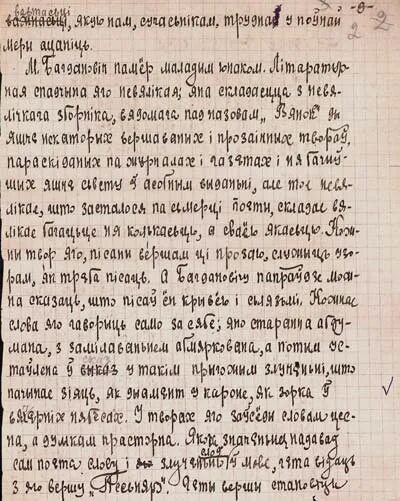 вартасьці -9- 2
важнасьці, якую нам, сучасьнікам, трудна ў поўнай 2
меры ацаніць.
М. Багдановіч памёр маладым юнаком. Літаратур-
ная спадчына яго невялікая; яна складаецца з невя-
лічкага зборніка, вядомага пад назовам „Вянок" ды
яшчэ некаторых вершаваных і прозаічных твораў,
параскіданых па журналах і газэтах і ня бачыў-
шых яшчэ сьвету ў асобным выданьні, але тое невя-
лікае, што засталося па сьмерці поэты, складае вя-
лікае багацьце ня колькасьцю, а сваёю якасьцю. Кож-
ны твор яго, пісаны вершам ці прозаю, служыць узо-
рам, як трэба пісаць. А Багдановічу папраўдзе мож-
на сказаць, што пісаў ён крывёю і сьлязьмі. Кожнае
слова яго гаворыць само за сябе; яно старанна абду-
мана, з замілаваньнем абмяркована, а потым ус-
сказ
таўлена ў выказ у такім прыгожым злучэньні, што
пачынае зіяць, як дыамэнт у кароне, як зорка ў
вячэрніх нябёсах. У творах яго заўсёды словам цес-
на, а думкам прасторна. Якое значэньне надаваў
слоў
сам поэта слову і злучэньню ў мове, гэта відаць
з яго вершу „Песьняр". Гэты верш становіць